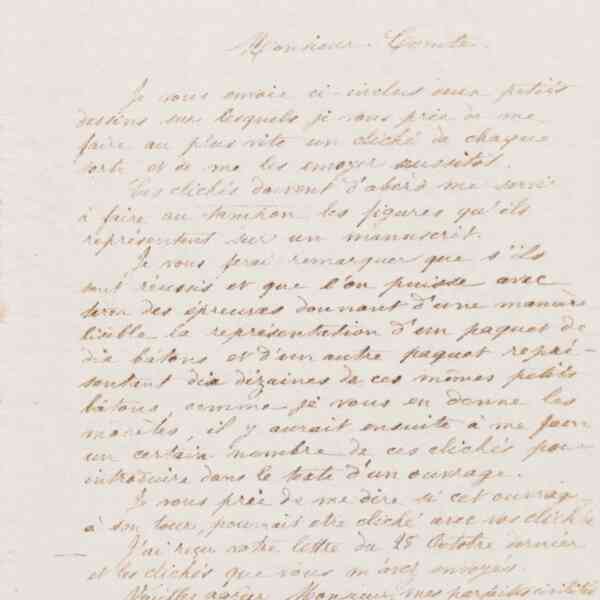 Monsieur Comte.
Je vous envoie ci-inclus deux petits
dessins sur lesquels je vous prie de me
faire au plus vite un cliché de chaque
sorte et de me les envoyer aussitot.
Ces clichés doivent d'abord me servir
à faire au tampon les figures qu'ils
représentent sur un manuscrit.
Je vous ferai remarquer que s'ils
sont réussis et que l'on puisse avec
tirer des épreuves donnant d'une manière
lisible la représentation d'un paquet de
dix bâtons et d'un autre paquet repré-
sentant dix dizaines de ces mêmes petits
bâtons, comme je vous en donne les
modèles, il y aurait ensuite à me
un certain nombre de ces clichés pour
introduire dans le texte d'un ouvrage.
Je vous prie de me dire si cet ouvrag
à son tour, pourrait etre cliché avec vos clichés
J'ai reçu votre lettre du 28 Octobre dernier
et les clichés que vous m'avez envoyés.
Veuillez agréer Monsieur, mes parfaites civilités